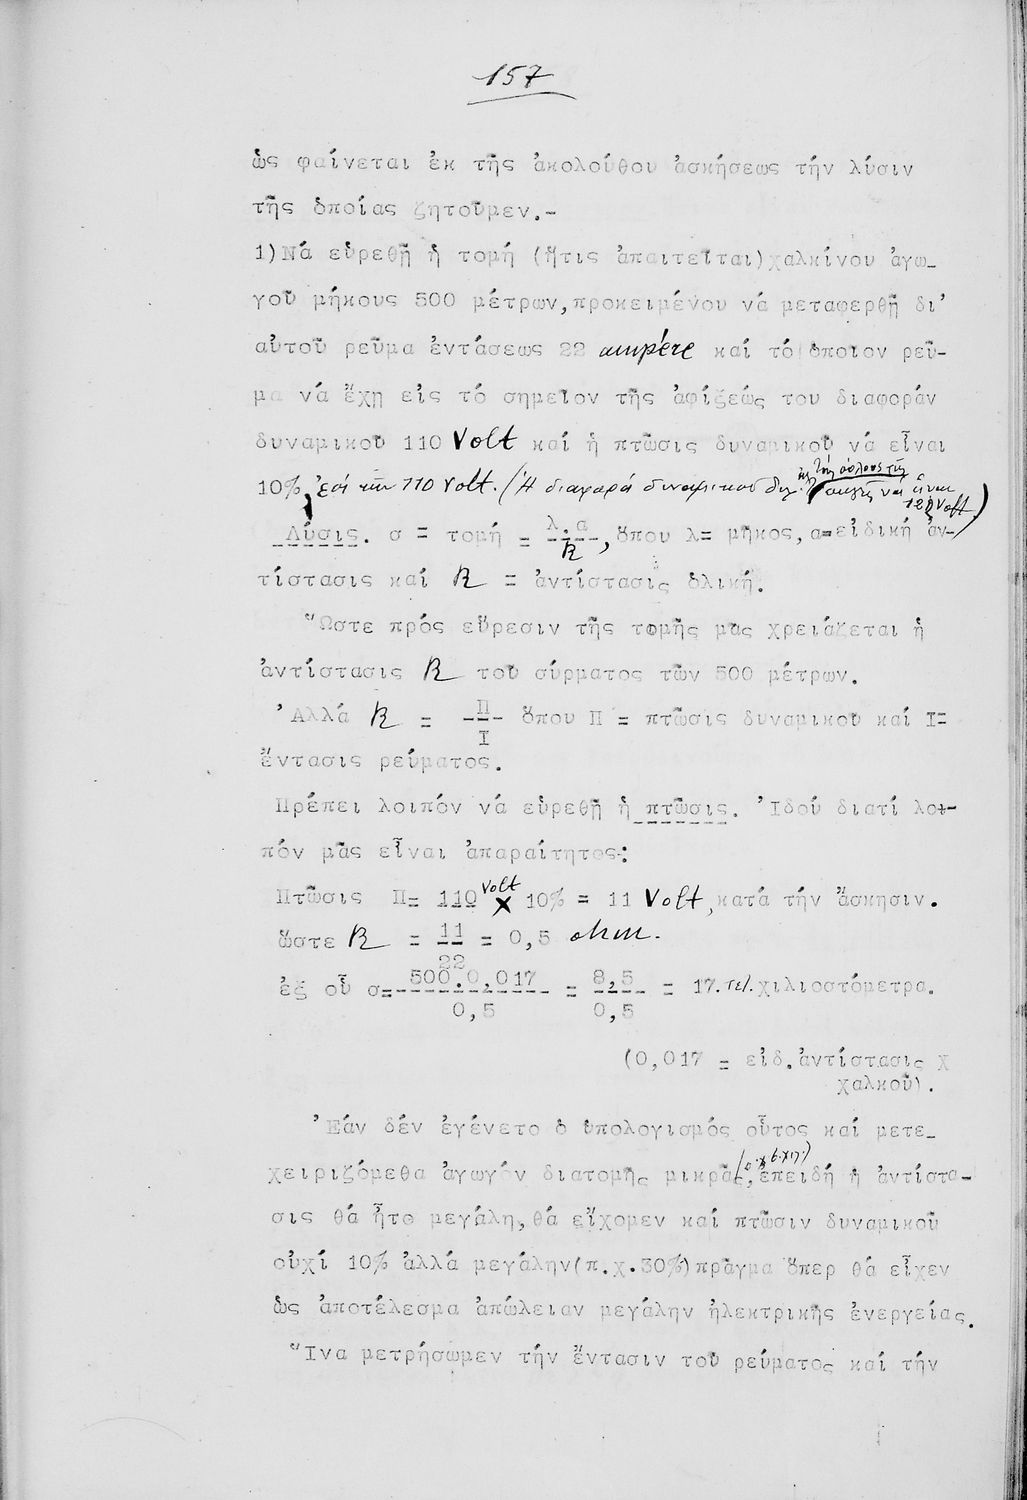 157
ὡς φαίνεται ἐκ τῆς ἀκολούθου ἀσκήσεως τήν λύσιν
τῆς ὁποίας ζητοῦμεν.-
1)Νά εὑρεθῇ ἡ τομή (ἥτις ἀπαιτεῖται)χαλκίνου ἀγω_
γοῦ μήκους 500 μέτρων,προκειμένου νά μεταφερθῇ δι'
αὐτοῦ ρεῦμα ἐντάσεως 22 ampére καί τό ὁποιον ρεῦ-
μα νά ἔχῃ εἰς τό σημεῖον τῆς ἀφίξεώς του διαφοράν
δυναμικοῦ 110 Volt καί ἡ πτῶσις δυναμικοῦ νά εἶναι
10% ἐπί τῶν 110 Volt. (Ἡ διαφορά δυναμικοῦ τούς πόλους τῆς πηγῆς νά εἶναι
Volt.)
Λύσις. σ = τομή = λ.α/R ,ὅπου λ= μῆκος,α=εἰδική ἀν-
τίστασις καί R = ἀντίστασις ὁλική.
Ὥστε πρός εὕρεσιν τῆς τομῆς μας χρειάζεται ἡ
ἀντίστασις R τοῦ σύρματος τῶν 500 μέτρων.
Ἀλλά R = Π/Ι ὅπου Π = πτῶσις δυναμικοῦ καί Ι=
ἔντασις ρεύματος.
Πρέπει λοιπόν νά εὑρεθῇ ἡ πτῶσις. Ἰδού διατί λοι-
πόν μᾶς εἶναι ἀπαραίτητος:
Πτῶσις Π= 110 Volt x 10% = 11 Volt,κατά τήν ἄσκησιν.
ὥστε R = 11/22 = 0,5 ohm.
ἐξ οὗ σ= 500.0,017/0,5 = 8,5/0,5 = 17.τελ.χιλιοστόμετρα.
(0,017 = εἰδ.ἀντίστασις χ
χαλκοῦ).
Ἐάν δέν ἐγένετο ὁ ὑπολογισμός οὗτος καί μετε_
χειριζόμεθα ἀγωγόν διατομῆς μικρᾶς,ἐπειδή ἡ ἀντίστα-
σις θά ἦτο μεγάλη,θά εἴχομεν καί πτῶσιν δυναμικοῦ
οὐχί 10% ἀλλά μεγάλην(π.χ.30%)πρᾶγμα ὅπερ θά εἶχεν
ὡς ἀποτέλεσμα ἀπώλειαν μεγάλην ἠλεκτρικῆς ἐνεργείας.
Ἵνα μετρήσωμεν τήν ἔντασιν τοῦ ρεύματος καί τήν